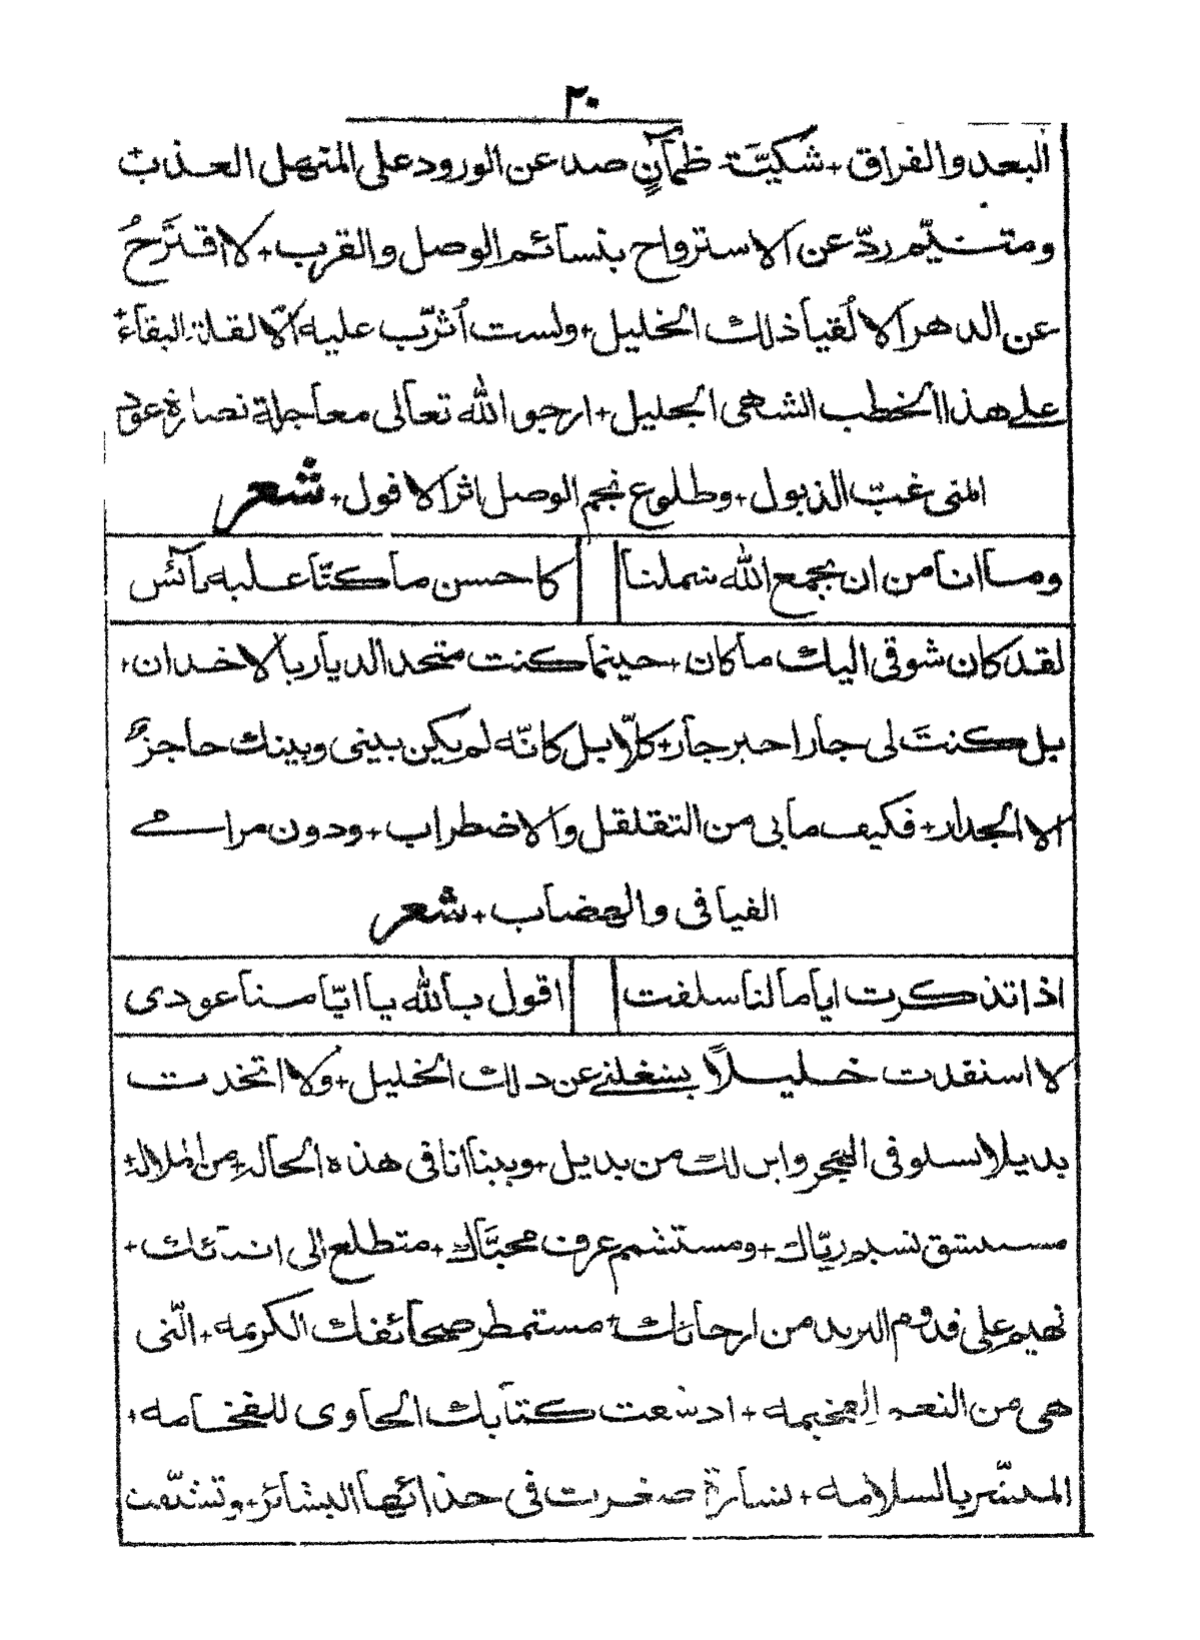 ٢٠
البعد والفراق + شكيّة ظمآنٍ صد عن الورود على المنهل العذب +
ومتيّم ردّ عن الاسترواح بنسائم الوصل والقرب + لا اقترحُ
عن الدهر الا لُقيا ذلك الخليل + ولست أثرّب عليه الّا لقلة البقاء +
على هذا الخطب الشهى الجليل + ارجو الله تعالى معاجلة نضارة عود
المنى غبّ الذبول + وطلوع نجم الوصل اثر الافول + شعر
وما انا من ان يجمع الله شملنا كاحسن ما كنّا عليه بآئس
لقد كان شوقى اليك ما كان + حينما كنت متحد الديار بالاخدان +
بل كنتَ لى جارا حبر جار + كلّا بل كانّه لم يكن بينى وبينك حاجزٌ
الا الجدار + فكيف مابى من التقلقل والاضطراب + ودون مرامى
الفيافى والهضاب + شعر
اذا تذكرت اياما لنا سلفت اقول بالله يا ايّامنا عودى
لا استفدت خليلاً يشغلنى عن ذلك الخليل + ولا اتخذت
بديلا اسلو فى الهجر واين لك من بديل + وبينا انا فى هذه الحالة من الملالة +
مستنشق نسيم ريّاك + ومستشم عرف محيّاك + متطلع الى انبآئك +
نهيم على قدوم البريد من ارجائك + مستمطر صحائفك الكريمه + الّتى
هى من النعم الفخيمه + اذ شعت كتابك الحاوى للفخامه +
المبشّر بالسلامه + بشارة صغرت فى حذائها البشائر + وتشنّفت